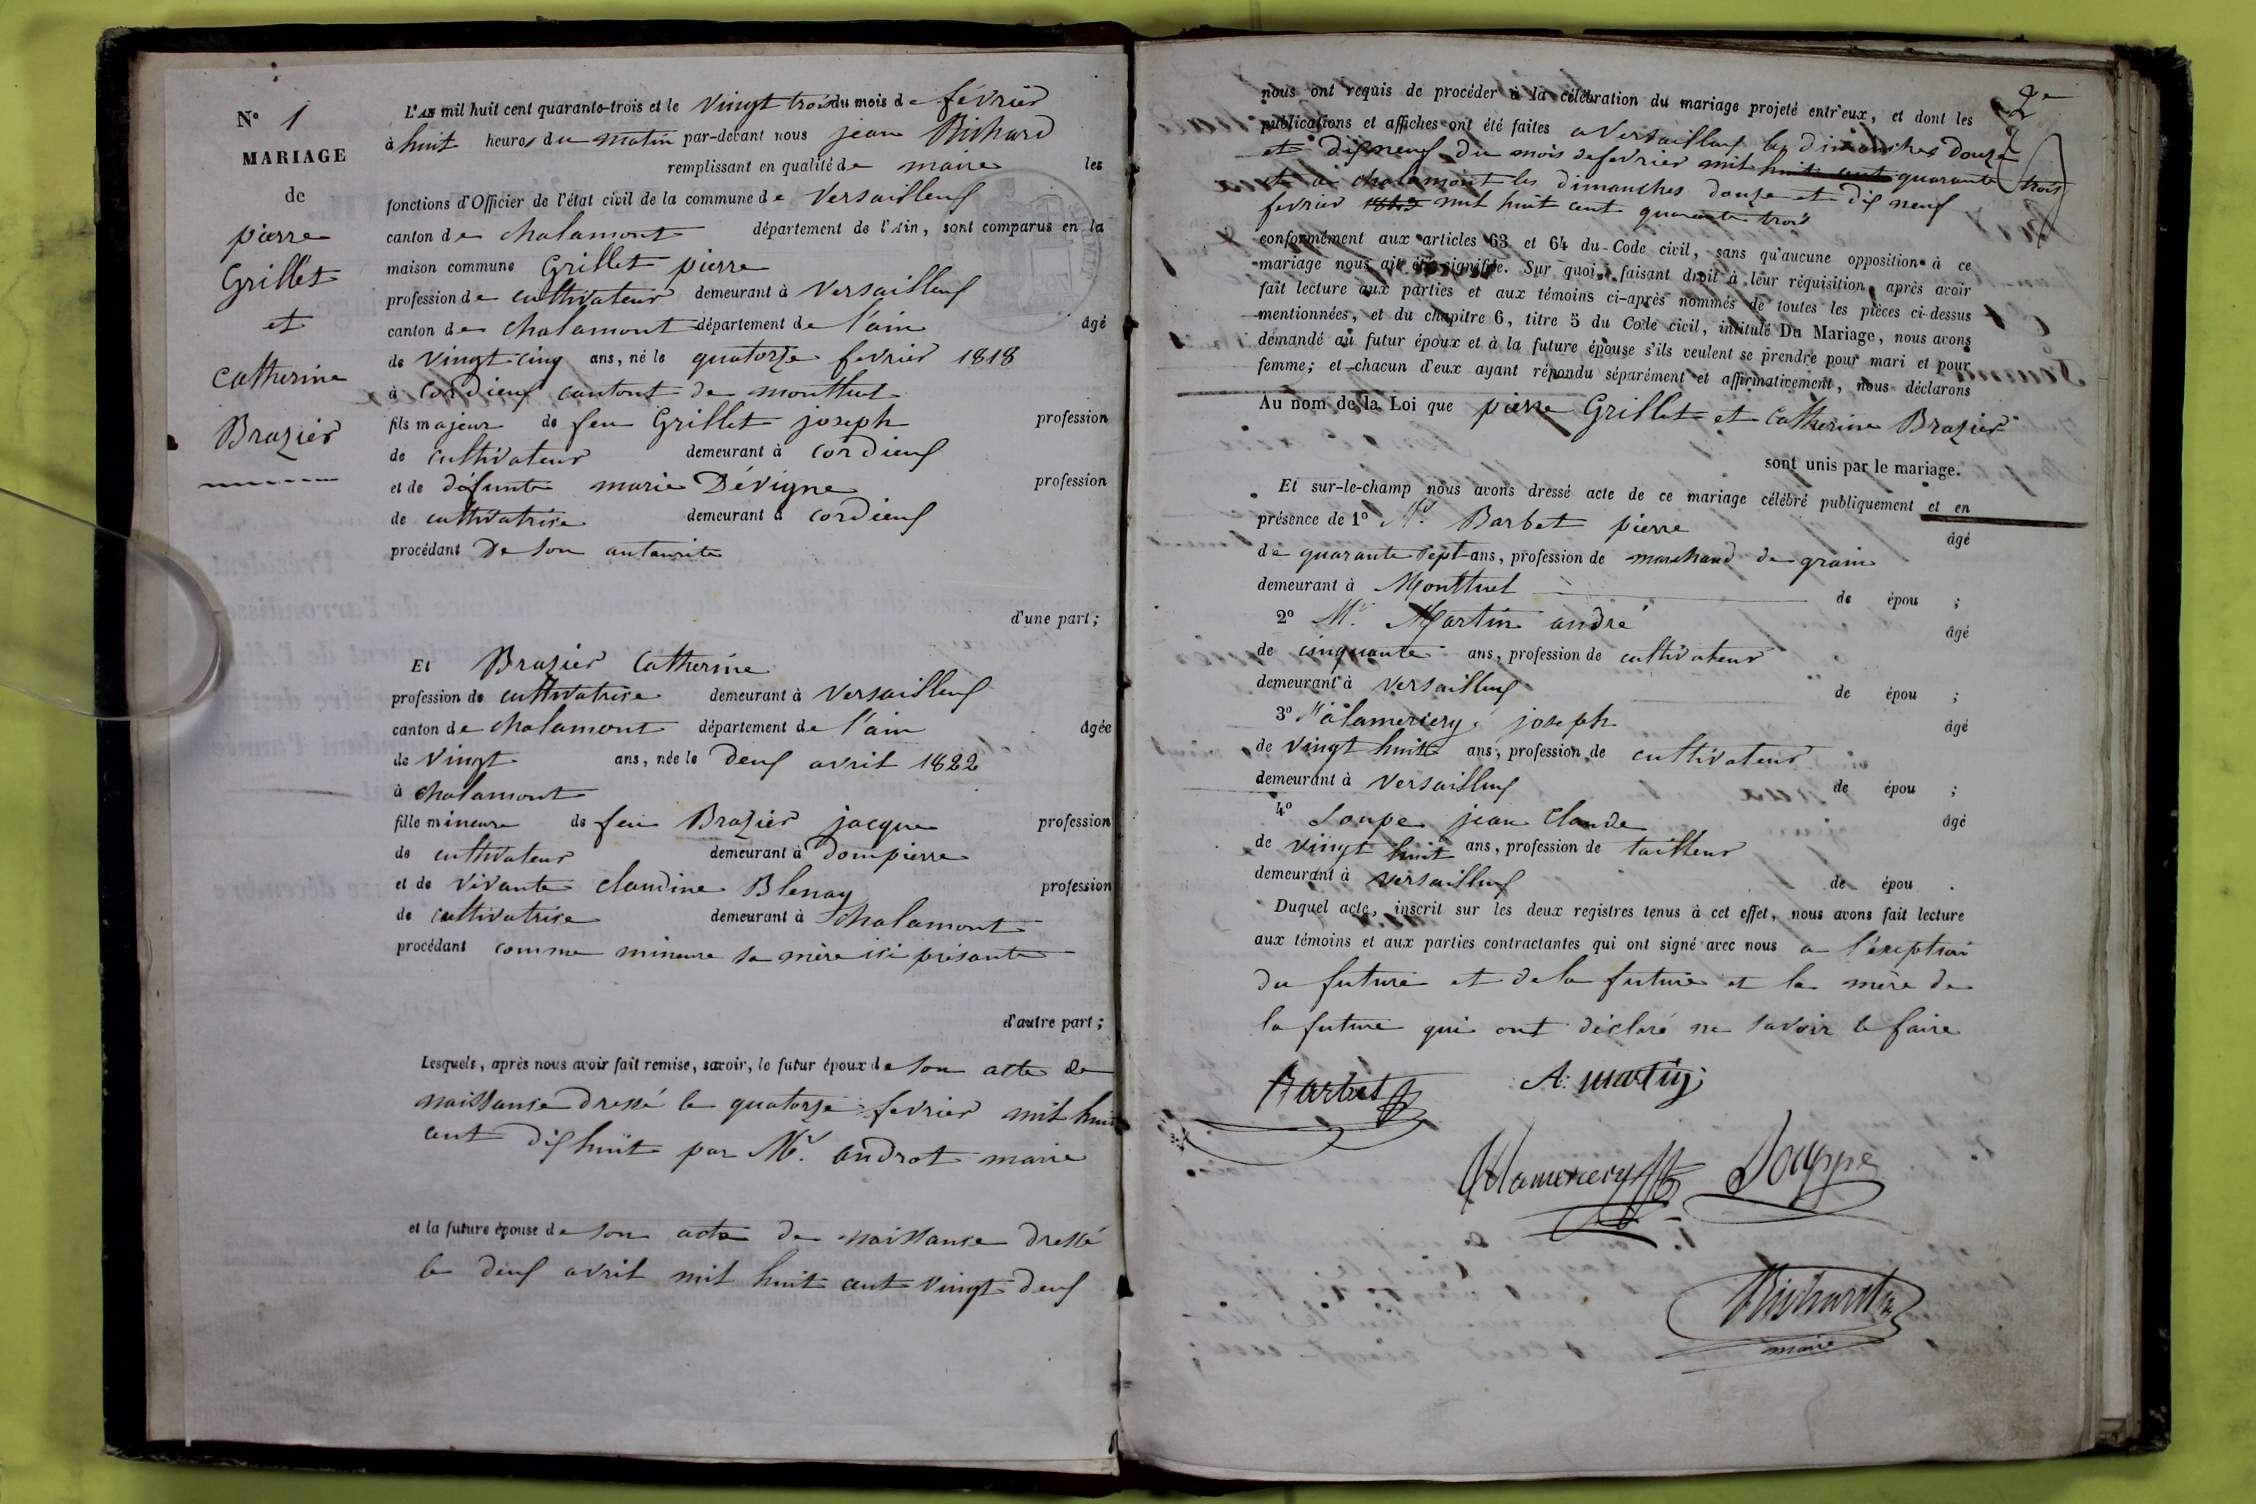 N° 1
MARIAGE
de
pierre
Grillet
et
Catherine
Brazier
L'AN mil huit cent quarante-trois et le vingt trois du mois de février
à huit heures du matin par-devant nous jean Bichard
remplissant en qualité de maire les
fonctions d'Officier de l'état civil de la commune de Versailleux
canton de chalamont département de l'Ain, sont comparus en la
maison commune Grillet pierre
profession de cultivateur demeurant à Versailleux
canton de chalamont département de l'ain âgé
de vingt cinq ans, né le quatorze fevrier 1818
à Cordieux cantont de montluel
fils majeur de feu Grillet joseph profession
de cultivateur demeurant à cordieux
et de défunte marie Dévigne profession
de cultivatrise demeurant à cordieux
procédant De son autaurite
d'une part;
Et Brazier Catherine
profession de cultivatrise demeurant à Versailleux
canton de chalamont département de l'ain âgée
de vingt ans, née le deux avril 1822
à chalamont
fille mineure de feu Brazier jacque profession
de cultivateur demeurant à Dompierre
et de vivante claudine Blenay profession
de cultivatrise demeurant à chalamont
procédant comme mineure sa mère isi présante
d'autre part;
Lesquels, après nous avoir fait remise, savoir, le futur époux de son atte de
naissance dressé le quatorze fevrier mil huit
cent dix huit par Mr. androt maire
et la future épouse de son acte de naissance dressé
le deux avril mil huit cent vingt deux
2e
nous ont requis de procéder à la célébration du mariage projeté entr'eux, et dont les
publications et affiches ont été faites a Versailleux les dimanches douze
et dix neuf du mois de fevrier mil huit cent quarante trois
et a chalamont les dimanches douze et dix neuf
fevrier 1843 mil huit cent quarante trois
conformément aux articles 63 et 64 du Code civil, sans qu'aucune opposition à ce
mariage nous ait été signifiée. Sur quoi, faisant droit à leur réquisition, après avoir
fait lecture aux parties et aux témoins ci-après nommés de toutes les pièces ci-dessus
mentionnées, et du chapitre 6, titre 5 du Code civil, intitulé Du Mariage, nous avons
demandé au futur époux et à la future épouse s'ils veulent se prendre pour mari et pour
femme; et chacun d'eux ayant répondu séparément et affirmativement, nous déclarons
Au nom de la Loi que pierre Grillet et Catherine Brazier
sont unis par le mariage.
Et sur-le-champ nous avons dressé acte de ce mariage célébré publiquement et en
présence de 1° Mr. Barbet pierre
âgé
de quarante sept ans, profession de marchand de grain
demeurant à Montluel de épou ;
2° Mr. Martin andré
âgé
de cinquante ans, profession de cultivateur
demeurant à Versailleux de épou ;
3° joseph
âgé
de vingt huit ans, profession de cultivateur
demeurant à Versailleux de épou ;
4° Soupe jean claude
âgé
de vingt huit ans, profession de tailleur
demeurant à Versailleux de épou .
Duquel acte, inscrit sur les deux registres tenus à cet effet, nous avons fait lecture
aux témoins et aux parties contractantes qui ont signé avec nous a l'exeption
du future et de la future et la mère de
la future qui ont déclaré ne savoir le faire
Barbet
A: martin
Souppe
Bichard
maire